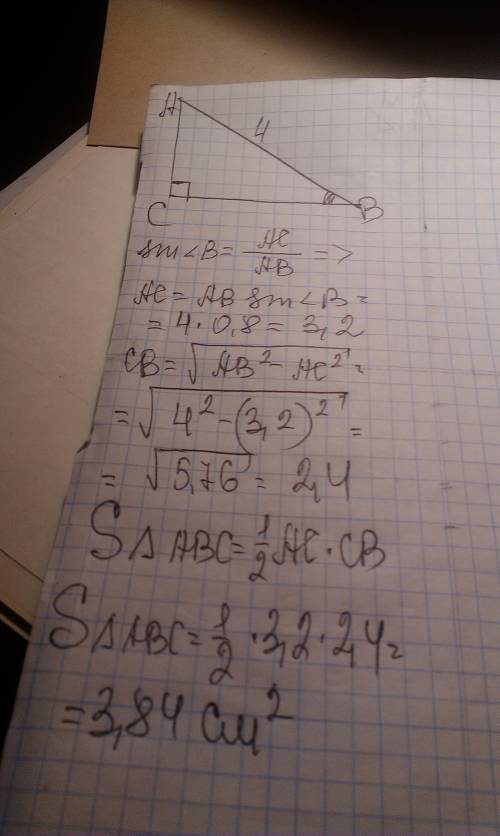 A
4
C
B
sin∠B = AC/AB =>
AC = AB sin∠B =
= 4·0,8 = 3,2
CB = √(AB² - AC²) =
= √(4² - (3,2)²) =
= √5,76 = 2,4
S△ABC = 1/2 AC·CB
S△ABC = 1/2 · 3,2 · 2,4 =
= 3,84 см²